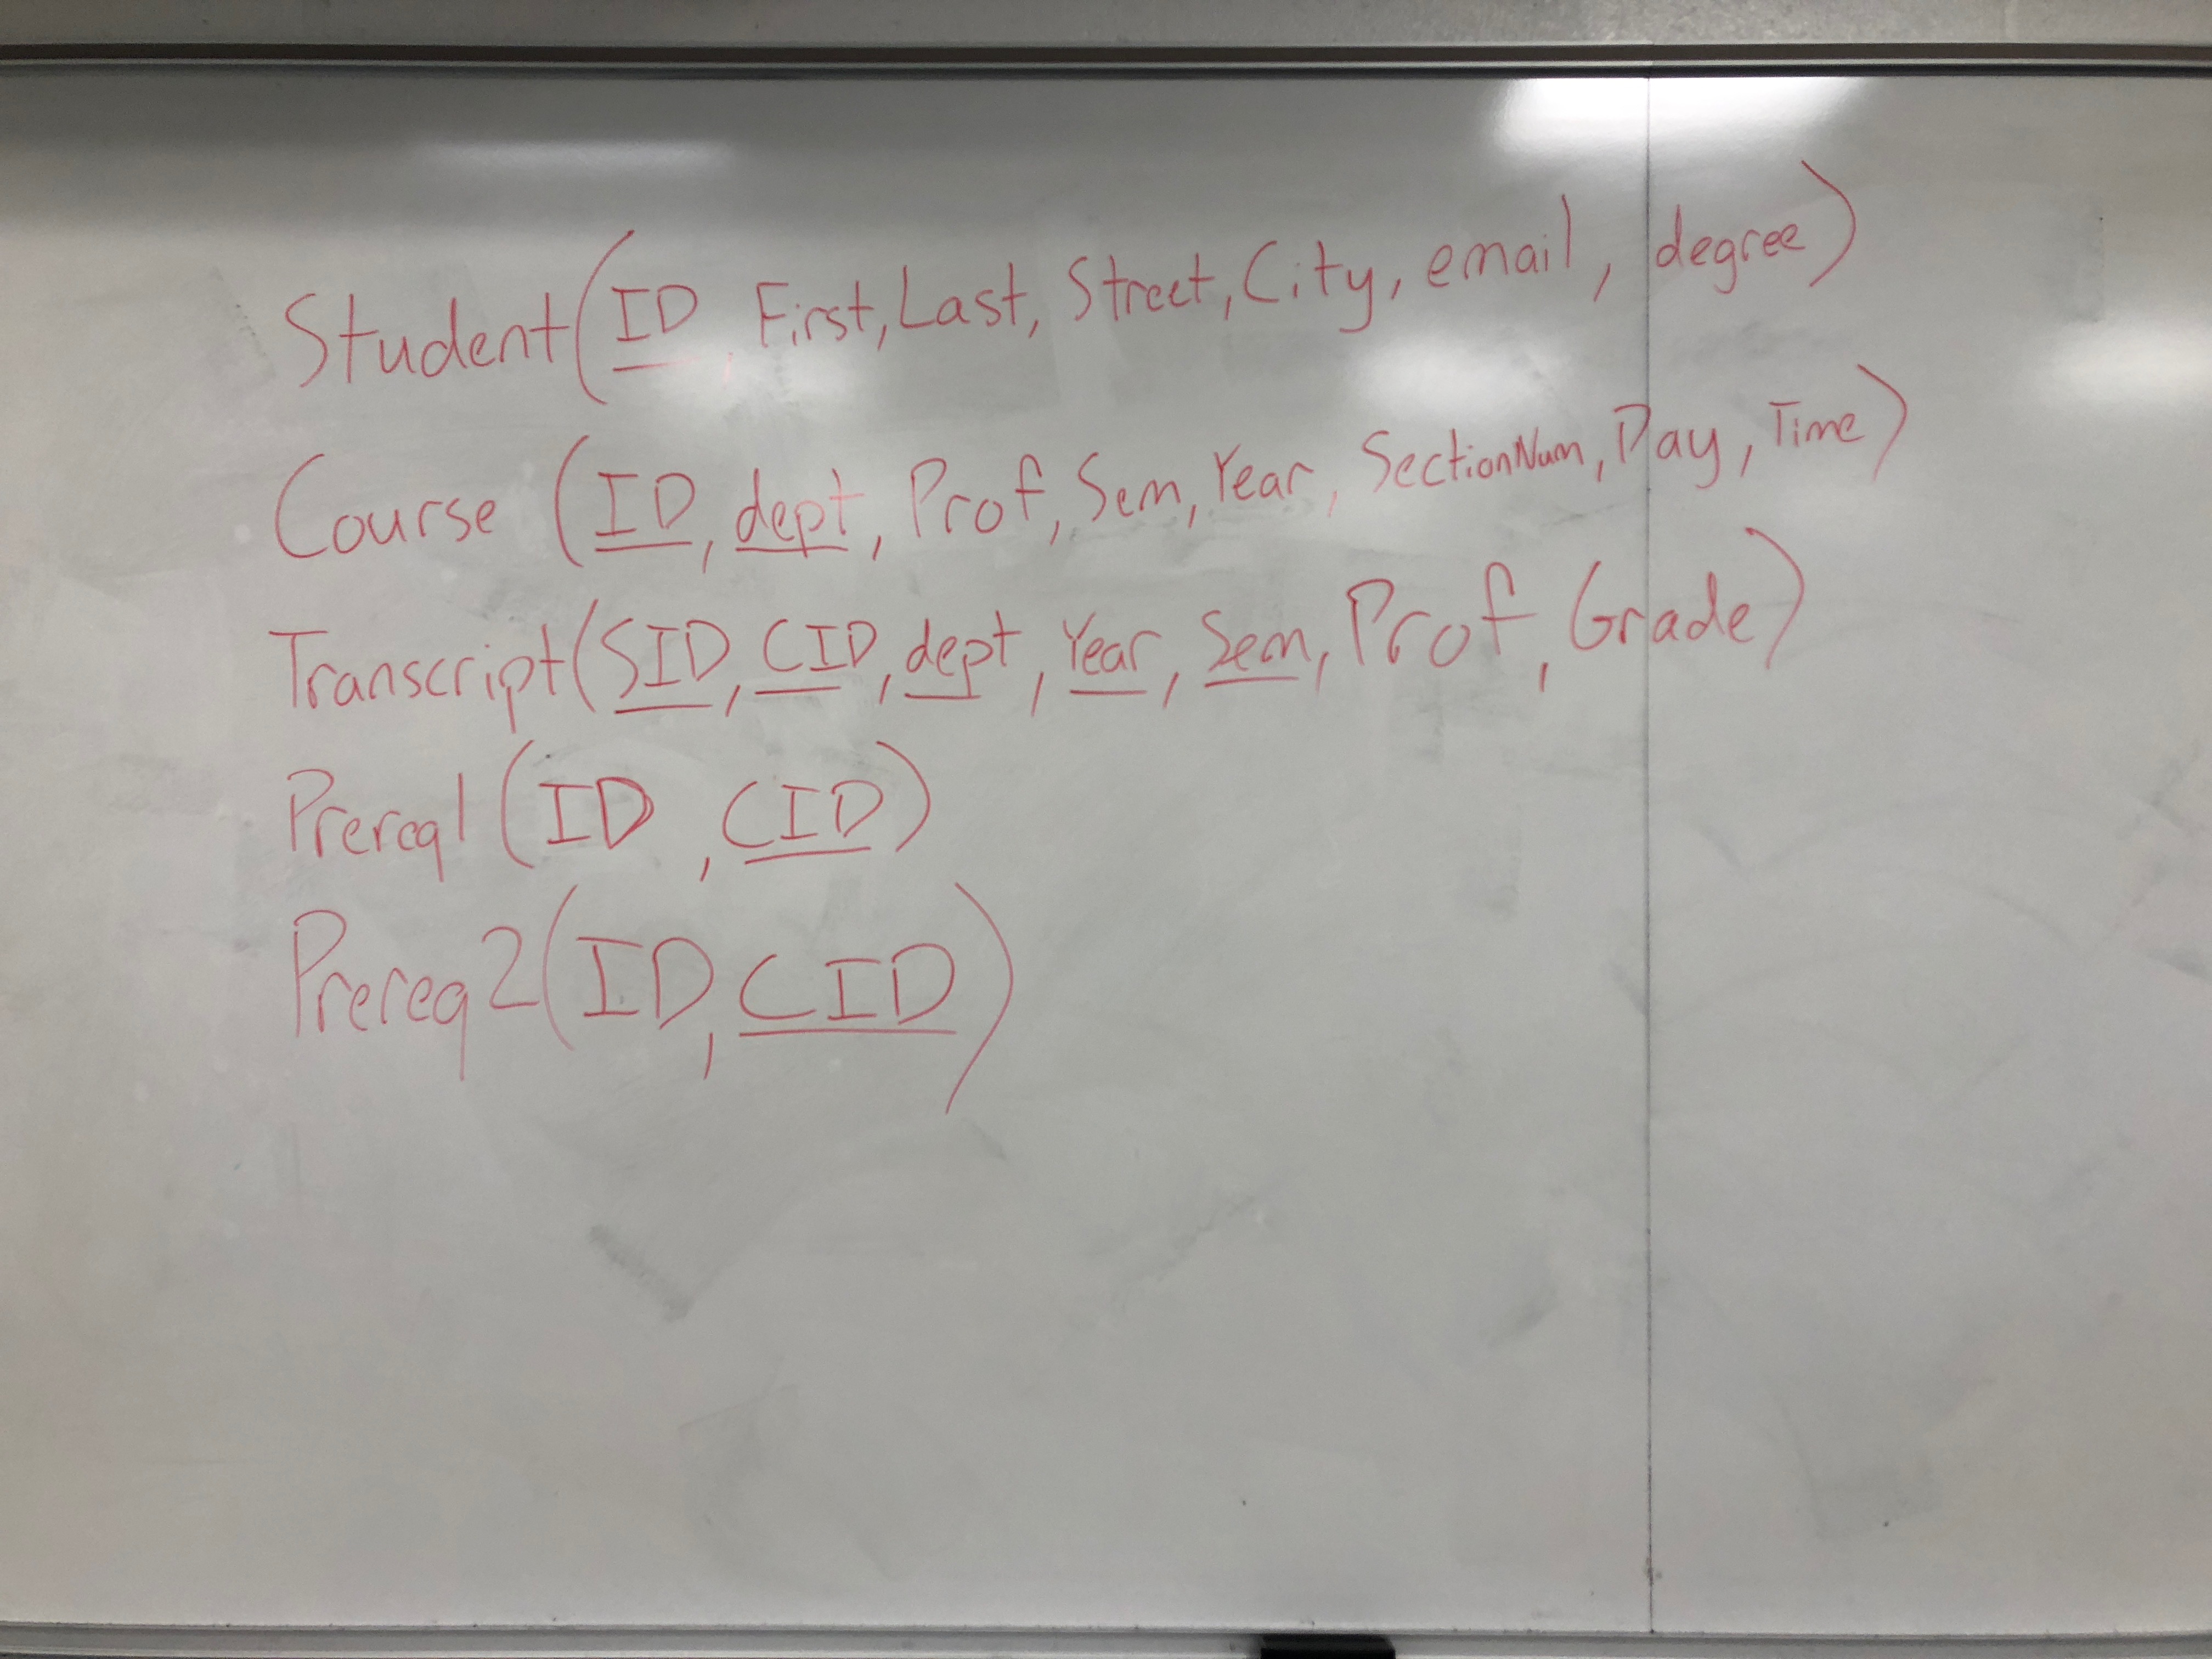 Student(ID, First, Last, Street, City, email, degree)
Course (ID, dept, Prof, Sem, Year, SectionNum, Day, Time)
Transcript(SID, CID, dept, Year, Sem, Prof, Grade)
Prereq1(ID, CID)
Prereq2(ID, CID)